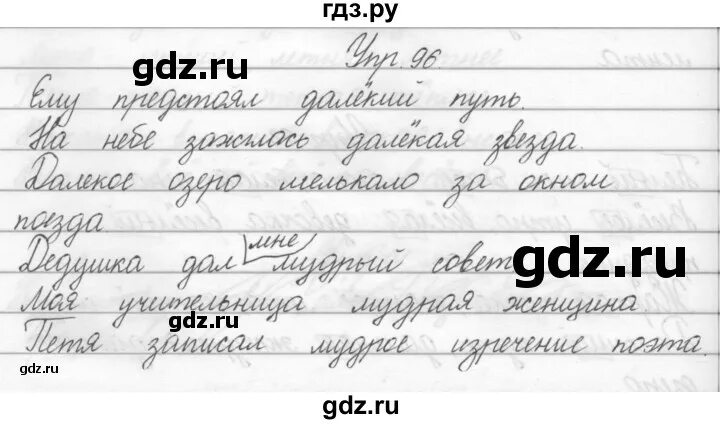 гдз.ру
Упр. 96.
gdz.ru
Ему предстоял далёкий путь.
gdz.ru
На небе зажглась далёкая звезда.
Далекое озеро мелькало за окном
поезда
мне
Дедушка дал мудрый совет
gdz.ru
Моя учительница мудрая женщина.
gdz.ru
Петя записал мудрое изречение поэта.
gdz.ru
gdz.ru
gdz.ru